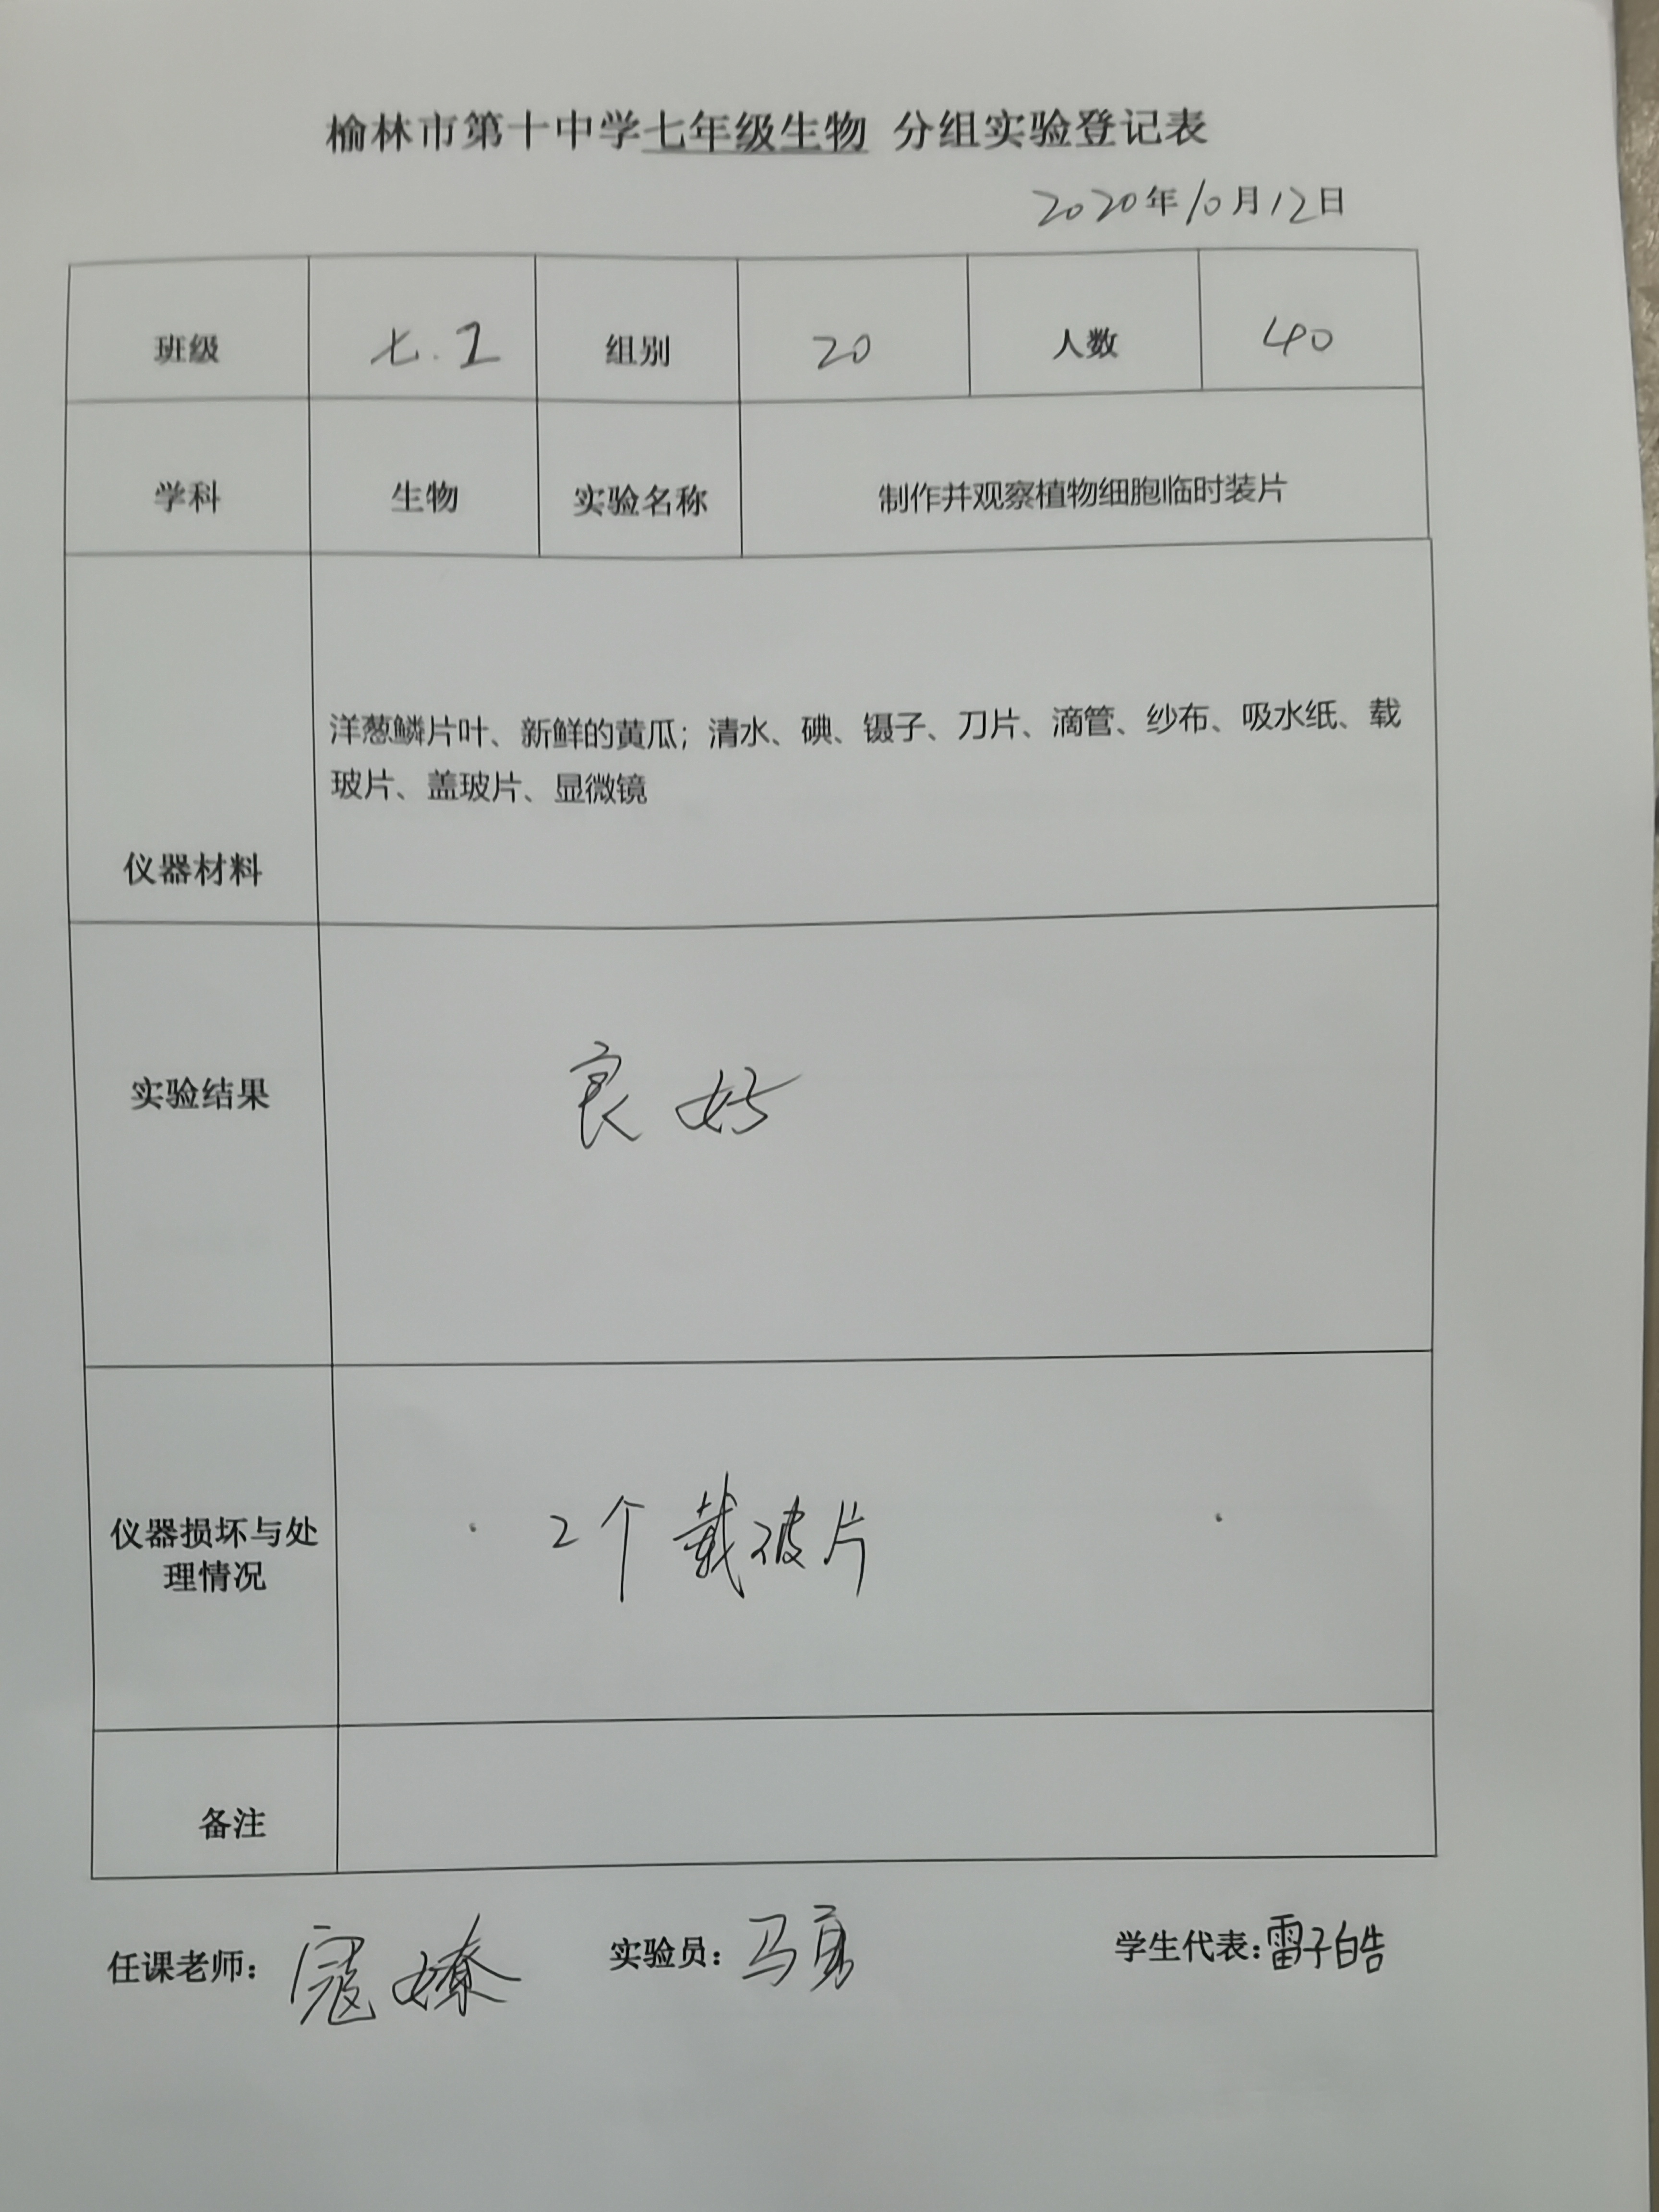 榆林市第十中学七年级生物 分组实验登记表
2020年10月12日
班级 七.1 组别 20 人数 40
学科 生物 实验名称 制作并观察植物细胞临时装片
仪器材料
洋葱鳞片叶、新鲜的黄瓜；清水、碘、镊子、刀片、滴管、纱布、吸水纸、载
玻片、盖玻片、显微镜
实验结果 良好
仪器损坏与处
理情况
2个载玻片
备注
任课老师：寇嫽 实验员：马勇 学生代表：雷子皓